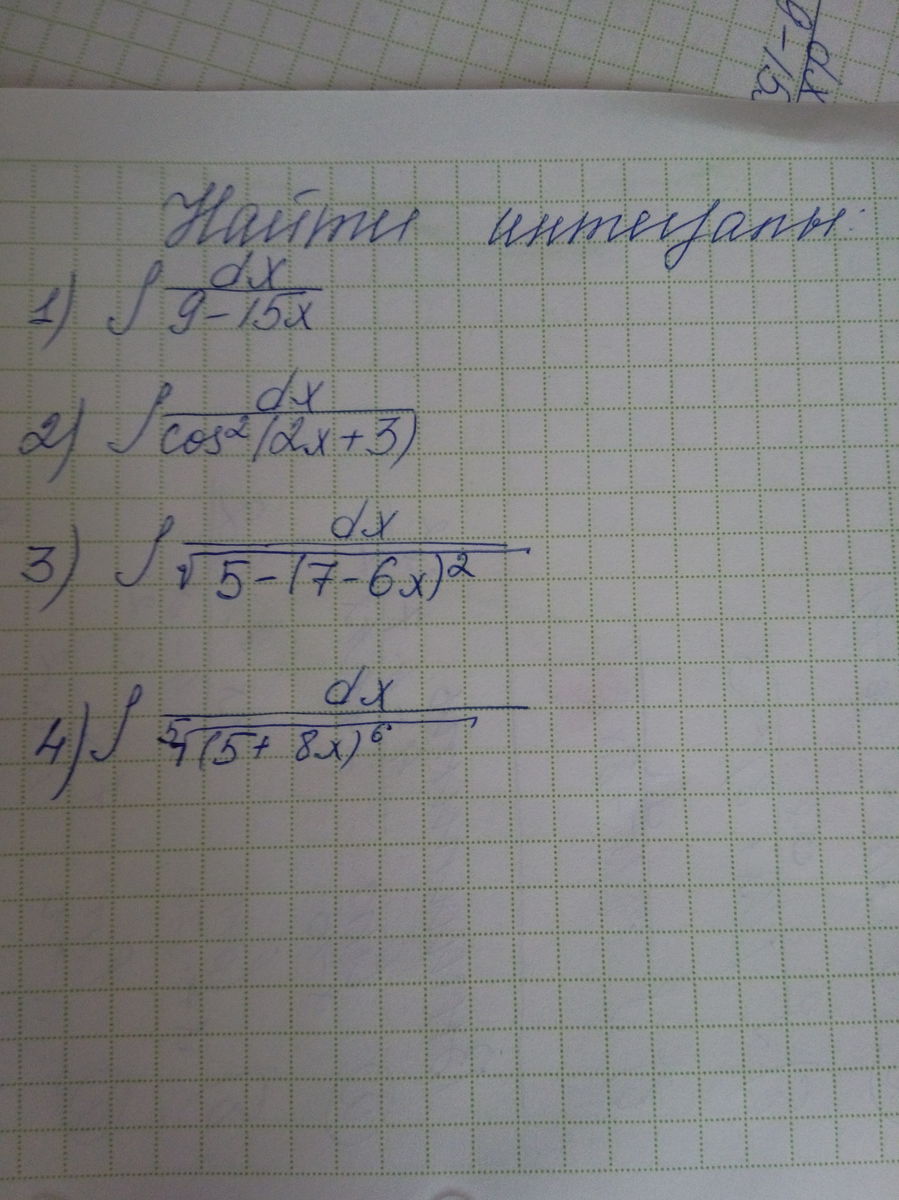 dx
9-15
Найти интегралы:
1) ∫ dx / (9-15x)
2) ∫ dx / cos²(2x+3)
3) ∫ dx / √(5-(7-6x)²)
4) ∫ dx / ⁵√((5+8x)⁶)